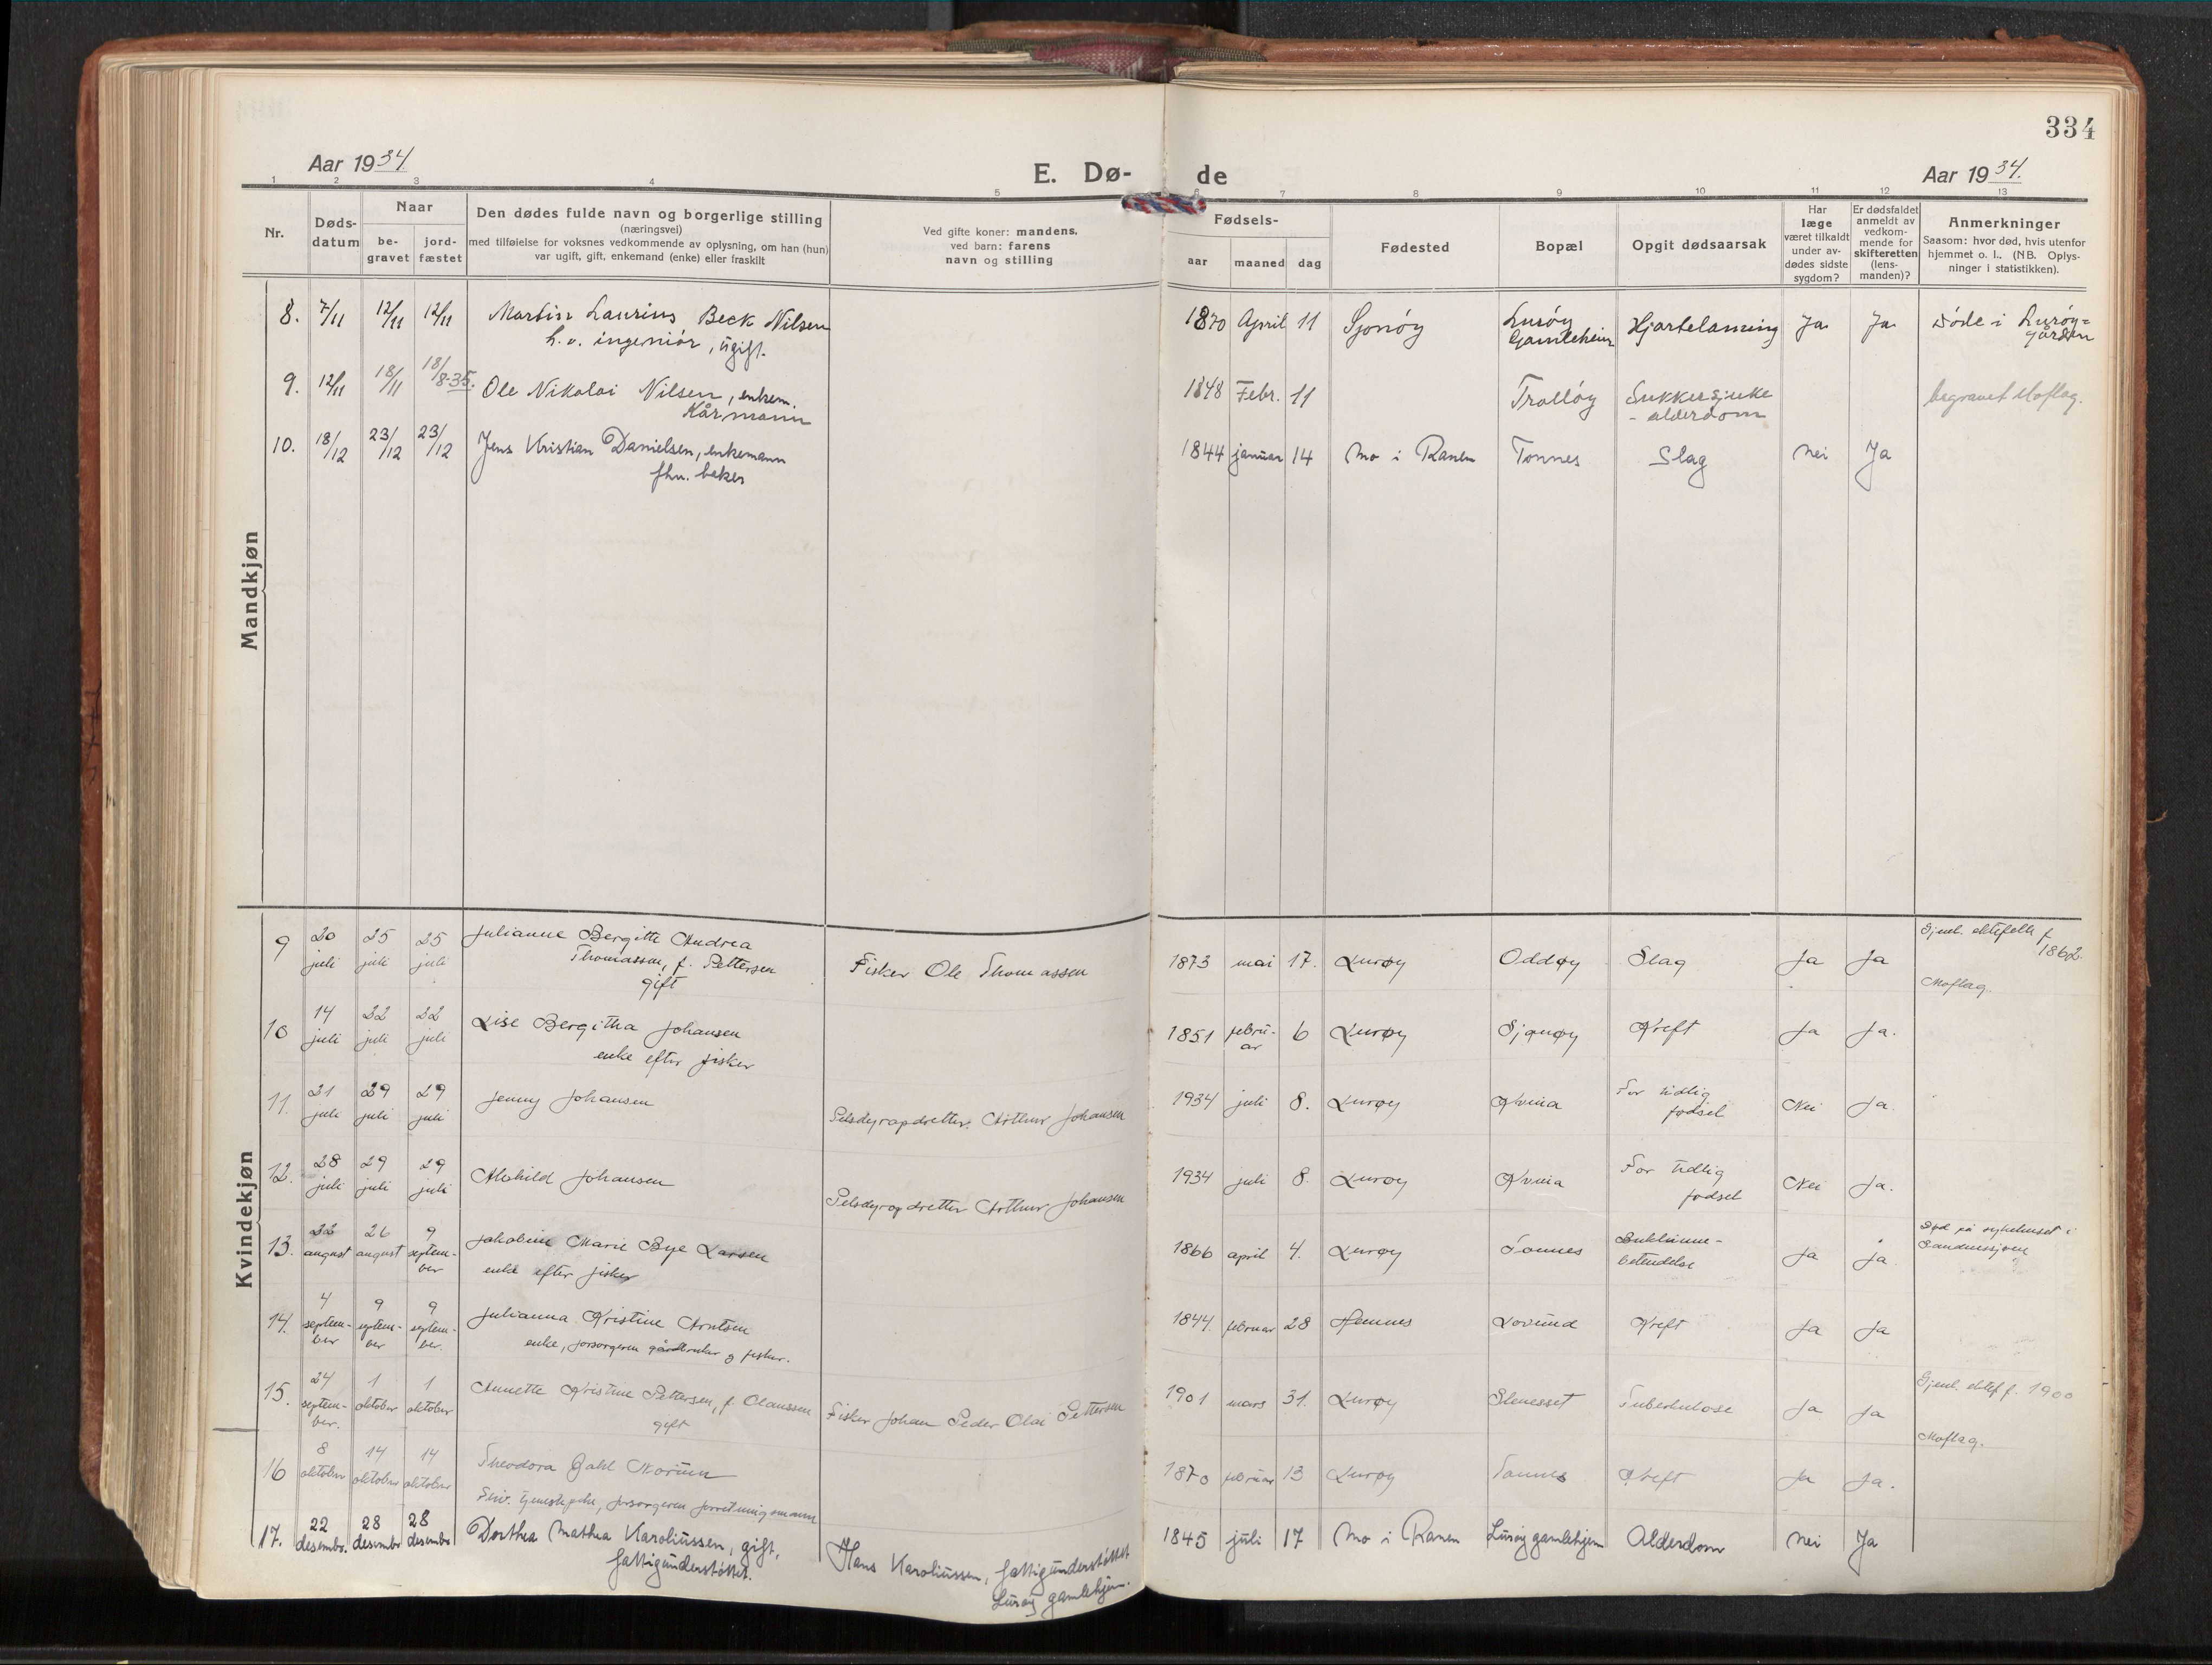 334
Aar 1934.
E. Dø-
de
Aar 1934.
1 2 3 4 5 6 7 8 9 10 11 12 13
Nr.
Døds-
datum
Naar
be-
gravet
jord-
fæstet
Den dødes fulde navn og borgerlige stilling
(næringsvei)
med tilføielse for voksnes vedkommende av oplysning, om han (hun)
var ugift, gift, enkemand (enke) eller fraskilt
Ved gifte koner: mandens,
ved barn: farens
navn og stilling
Fødsels-
aar maaned dag
Fødested
Bopæl
Opgit dødsaarsak
Har
læge
været tilkaldt
under av-
dødes sidste
sygdom?
Er dødsfaldet
anmeldt av
vedkom-
mende for
skifteretten
(lens-
manden)?
Anmerkninger
Saasom: hvor død, hvis utenfor
hjemmet o. l.. (NB. Oplys-
ninger i statistikken).
Mandkjøn
8. 7/11 12/11 12/11 Martin Laurius Beck Nilsen 1870 April 11 Sjonøy Lurøy Hjartelamming Ja Ja Døde i Lurøy=
ingeniør, ugift. Gamleheim gården
9. 12/11 18/11 18/8-35. Ole Nikolai Nilsen, enkem. 1848 Febr. 11 Trolløy Sukkersjuke begravet Moflag.
Kårmann - alderdom
10. 18/12 23/12 23/12 Jens Kristian Danielsen, enkemann 1844 januar 14 Mo i Ranen Tonnes Slag Nei Ja
fhv. beker
Kvindekjøn
9 20 25 25 Julianne Bergitte Andrea Gjenl. ektefelle f.
juli juli juli Thomassen, f. Pettersen Fisker Ole Thomassen 1873 mai 17. Lurøy Oddøy Slag Ja Ja 1862.
gift Moflag.
10 14 22 22 Lise Bergitha Johansen 1851 febru- 6 Lurøy Sjonøy Kreft Ja Ja.
juli juli juli enke efter fisker ar
11. 21 29 29 Jenny Johansen 1934 juli 8. Lurøy Kvina For tidlig Nei Ja.
juli juli juli Pelsdyropdretter Arthur Johansen fødsel
12. 28 29 29 Alshild Johansen 1934 juli 8. Lurøy Kvina For tidlig Nei Ja.
juli juli juli Pelsdyropdretter Arthur Johansen fødsel
13. 22 26 9 Jakobine Marie Bye Larsen 1866 april 4. Lurøy Tonnes Bukhinne- Ja Ja Død på sykehuset i
august august septem- enke efter fisker betendelse Sandnessjøen
ber
14. 4 9 9 Julianna Kristine Arntsen 1844 februar 28 Hemnes Lovund Kreft Ja Ja
septem- septem- septem- enke, forsørgeren gårdbruker og fisker.
ber ber ber.
15. 24 1 1 Annette Kristine Pettersen, f. Olaussen 1901 mars 31. Lurøy Stenesset Tuberkulose Ja Ja Gjenl. ektef f. 1900
septem- oktober oktober gift Fisker Johan Peder Olai Pettersen
ber. Moflag.
16 8 14 14 Theodora Dahl 1870 februar 13 Lurøy Tonnes Kreft Ja Ja.
oktober oktober oktober tjenestepike, forsørgeren forretningsmann
17. 22 28 28 Dorthea Mathea Karoliussen, gift, 1845 juli 17 Mo i Ranen Lurøy gamlehjem Alderdom Nei Ja
desembr. desembr desembr fattigunderstøttet. Hans Karoliussen, fattigunderstøttet
Lurøy gamlehjem.